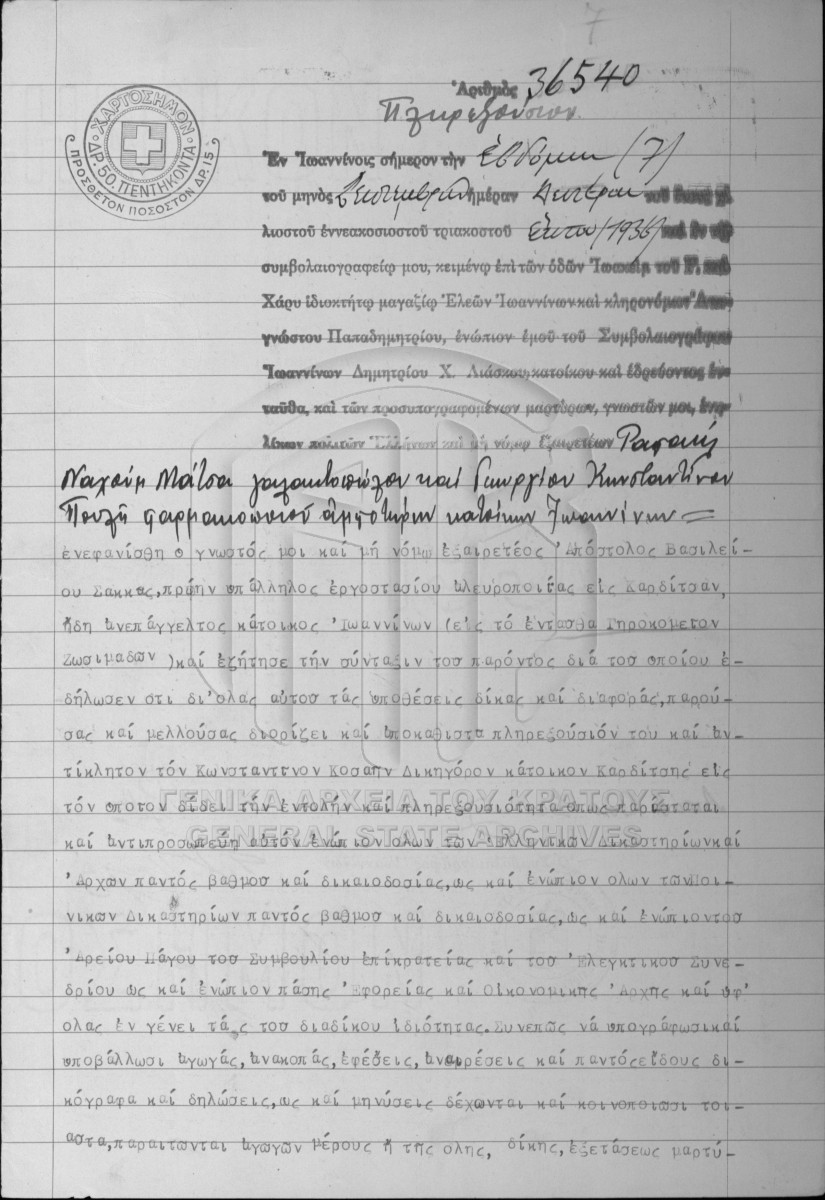 7
Ἀριθμὸς 36540
Πληρεξούσιον.
ΧΑΡΤΟΣΗΜΟΝ
ΔΡ. 50. ΠΕΝΤΗΚΟΝΤΑ
ΠΡΟΣΘΕΤΟΝ ΠΟΣΟΣΤΟΝ ΔΡ. 15
Ἐν Ἰωαννίνοις σήμερον τὴν ἑβδόμην (7)
τοῦ μηνὸς Σεπτεμβρίου ἡμέραν Δευτέραν τοῦ ἔτους χι
λιοστοῦ ἐννεακοσιοστοῦ τριακοστοῦ ἕκτου (1936) καὶ ἐν τῷ
συμβολαιογραφείῳ μου, κειμένῳ ἐπὶ τῶν ὁδῶν Ἰωακεὶμ τοῦ Γ. καὶ
Χάρυ ἰδιοκτήτῳ μαγαζίῳ Ἐλεῶν Ἰωαννίνων καὶ κληρονόμων Ἀνα-
γνώστου Παπαδημητρίου, ἐνώπιον ἐμοῦ τοῦ Συμβολαιογράφου
Ἰωαννίνων Δημητρίου Χ. Λιάσκου, κατοίκου καὶ ἑδρεύοντος ἐν-
ταῦθα, καὶ τῶν προσυπογραφομένων μαρτύρων, γνωστῶν μοι, ἐνη-
λίκων πολιτῶν Ἑλλήνων καὶ μὴ νόμῳ ἐξαιρετέων Ραφαήλ
Ναχούμ Μάτσα γαλακτοπώλου καί Γεωργίου Κωνσταντίνου
Πουλῆ φαρμακοποιοῦ ἀμφοτέρων κατοίκων Ἰωαννίνων =
ἐνεφανίσθη ὁ γνωστός μοι καί μή νόμῳ ἐξαιρετέος Ἀπόστολος Βασιλεί-
ου Σακκας, πρώην υπάλληλος ἐργοστασίου ἀλευροποιΐας εἰς Καρδίτσαν,
ἤδη ἀνεπάγγελτος κάτοικος Ἰωαννίνων (εἰς τό ἐνταῦθα Γηροκομεῖον
Ζωσιμαδῶν )καί ἐζήτησε τήν σύνταξιν τοῦ παρόντος διά τοῦ ὁποίου ἐ-
δήλωσεν ὅτι δι'ὅλας αὐτοῦ τάς ὑποθέσεις δίκας καί διαφοράς, παρού-
σας καί μελλούσας διορίζει καί ἀποκαθιστᾶ πληρεξούσιόν του καί ἀν-
τίκλητον τόν Κωνσταντῖνον Κοσαην Δικηγόρον κάτοικον Καρδίτσης εἰς
τόν ὁποῖον δίδει τήν ἐντολήν καί πληρεξουσιότητα ὅπως παρίσταται
ΓΕΝΙΚΑ ΑΡΧΕΙΑ ΤΟΥ ΚΡΑΤΟΥΣ
GENERAL STATE ARCHIVES
καί ἀντιπροσωπεύῃ αὐτόν ἐνώπιον ὅλων τῶν Ἑλληνικῶν Δικαστηρίων καί
Ἀρχῶν παντός βαθμοῦ καί δικαιοδοσίας, ὡς καί ἐνώπιον ὅλων τῶν Ποι-
νικῶν Δικαστηρίων παντός βαθμοῦ καί δικαιοδοσίας, ὡς καί ἐνώπιον τοῦ
Ἀρείου Πάγου τοῦ Συμβουλίου ἐπικρατείας καί τοῦ Ἐλεγκτικοῦ Συνε-
δρίου ὡς καί ἐνώπιον πάσης Ἐφορείας καί Οἰκονομικῆς Ἀρχῆς καί ὑφ'
ὅλας ἐν γένει τάς τοῦ διαδίκου ἰδιότητας. Συνεπῶς νά ὑπογράφωσι καί
ὑποβάλλωσι ἀγωγάς, ἀνακοπάς, ἐφέσεις, ἀναιρέσεις καί παντός εἴδους δι-
κόγραφα καί δηλώσεις, ὡς καί μηνύσεις δέχωνται καί κοινοποιῶσι τοι-
αῦτα, παραιτῶνται ἀγωγῶν μέρους ἤ τῆς ὅλης, δίκης, ἐξετάσεως μαρτύ-